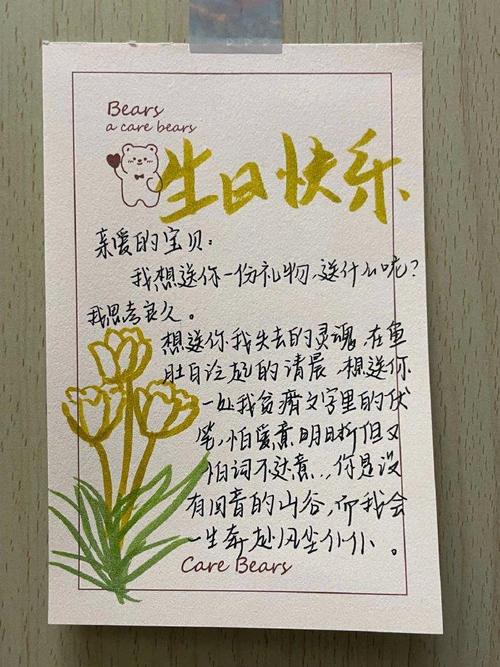 Bears
a care bears
生日快乐
亲爱的宝贝：
我想送你一份礼物、送什么呢？
我思考良久。
想送你我失去的灵魂，在鱼
肚白的清晨，想送你
一处我贫瘠文字里的伏
笔，怕爱意明晰但又
怕词不达意...，你是没
有回音的山谷，而我会
一生奔赴风尘仆仆。
Care Bears